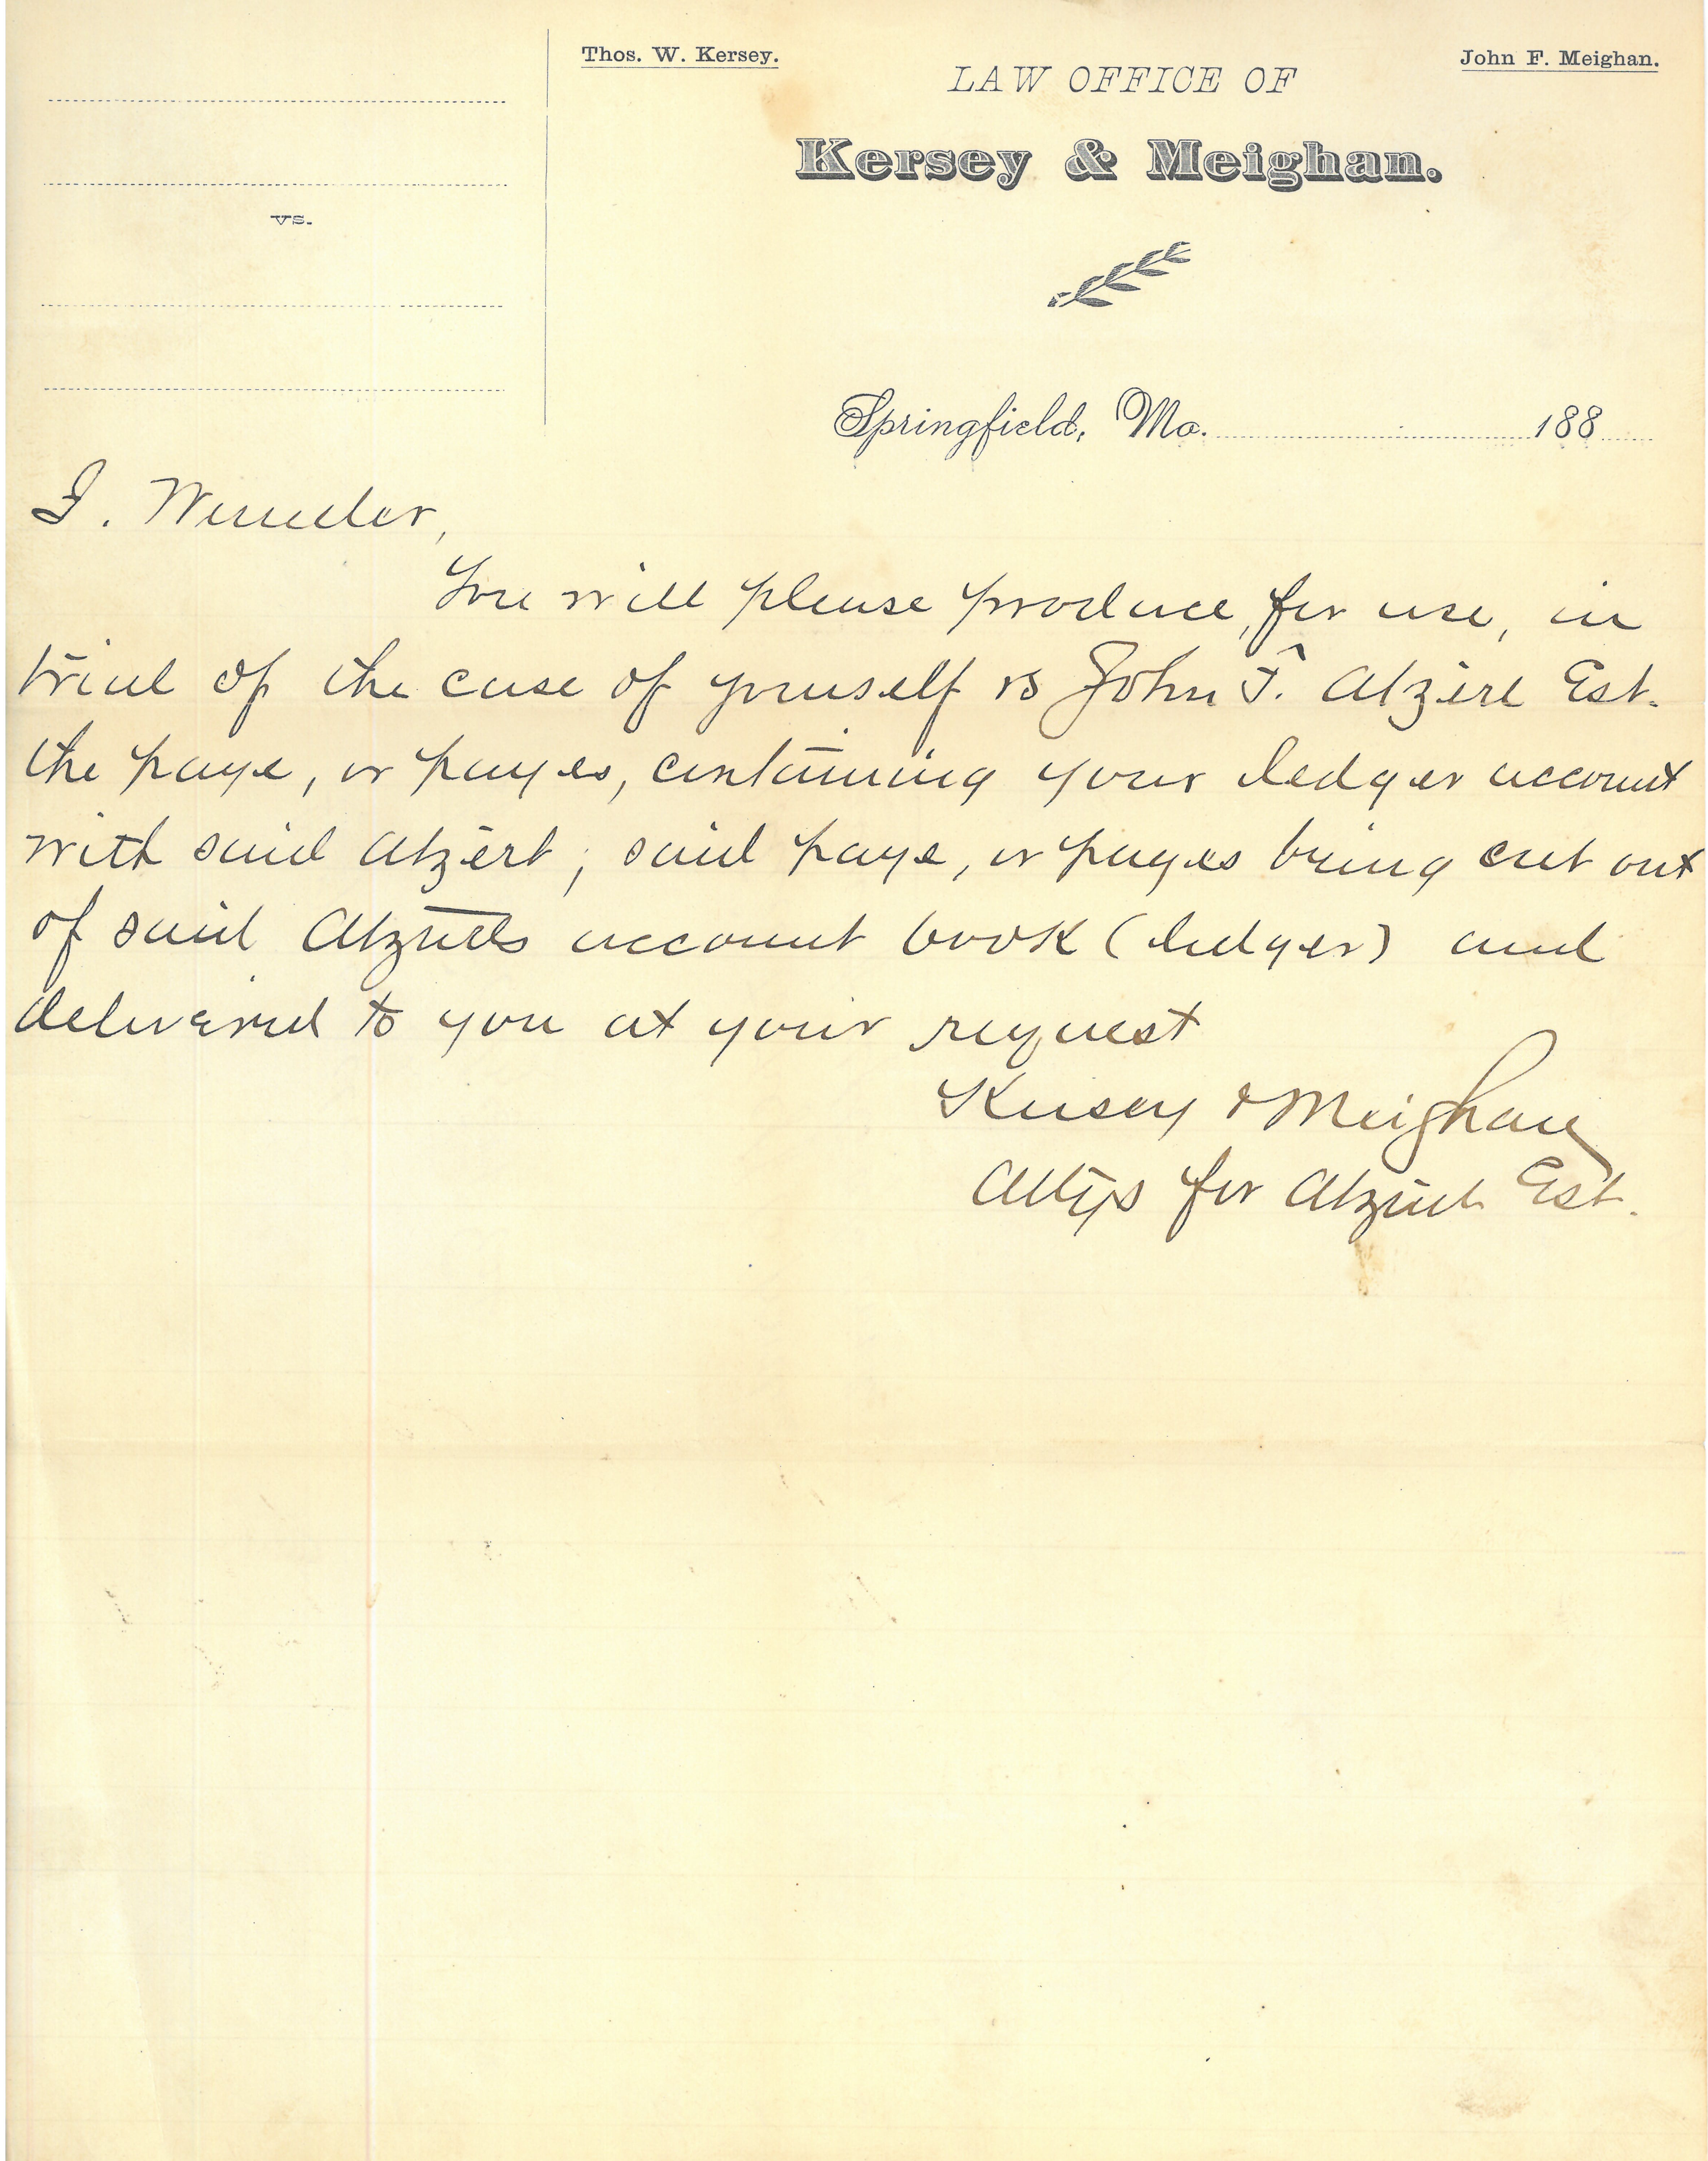 Thos. W. Kersey.
John F. Meighan.
LAW OFFICE OF
Kersey & Meighan.
vs.
Springfield, Mo. 188
You will please produce, for use, in
trial of the case of yourself vs John F. Atzert Est.
the page, or pages, containing your ledger account
with said Atzert; said page, or pages being cut out
of said Atzerts account book (ledger) and
delivered to you at your request
Kersey & Meighan
Attys for Atzert Est.